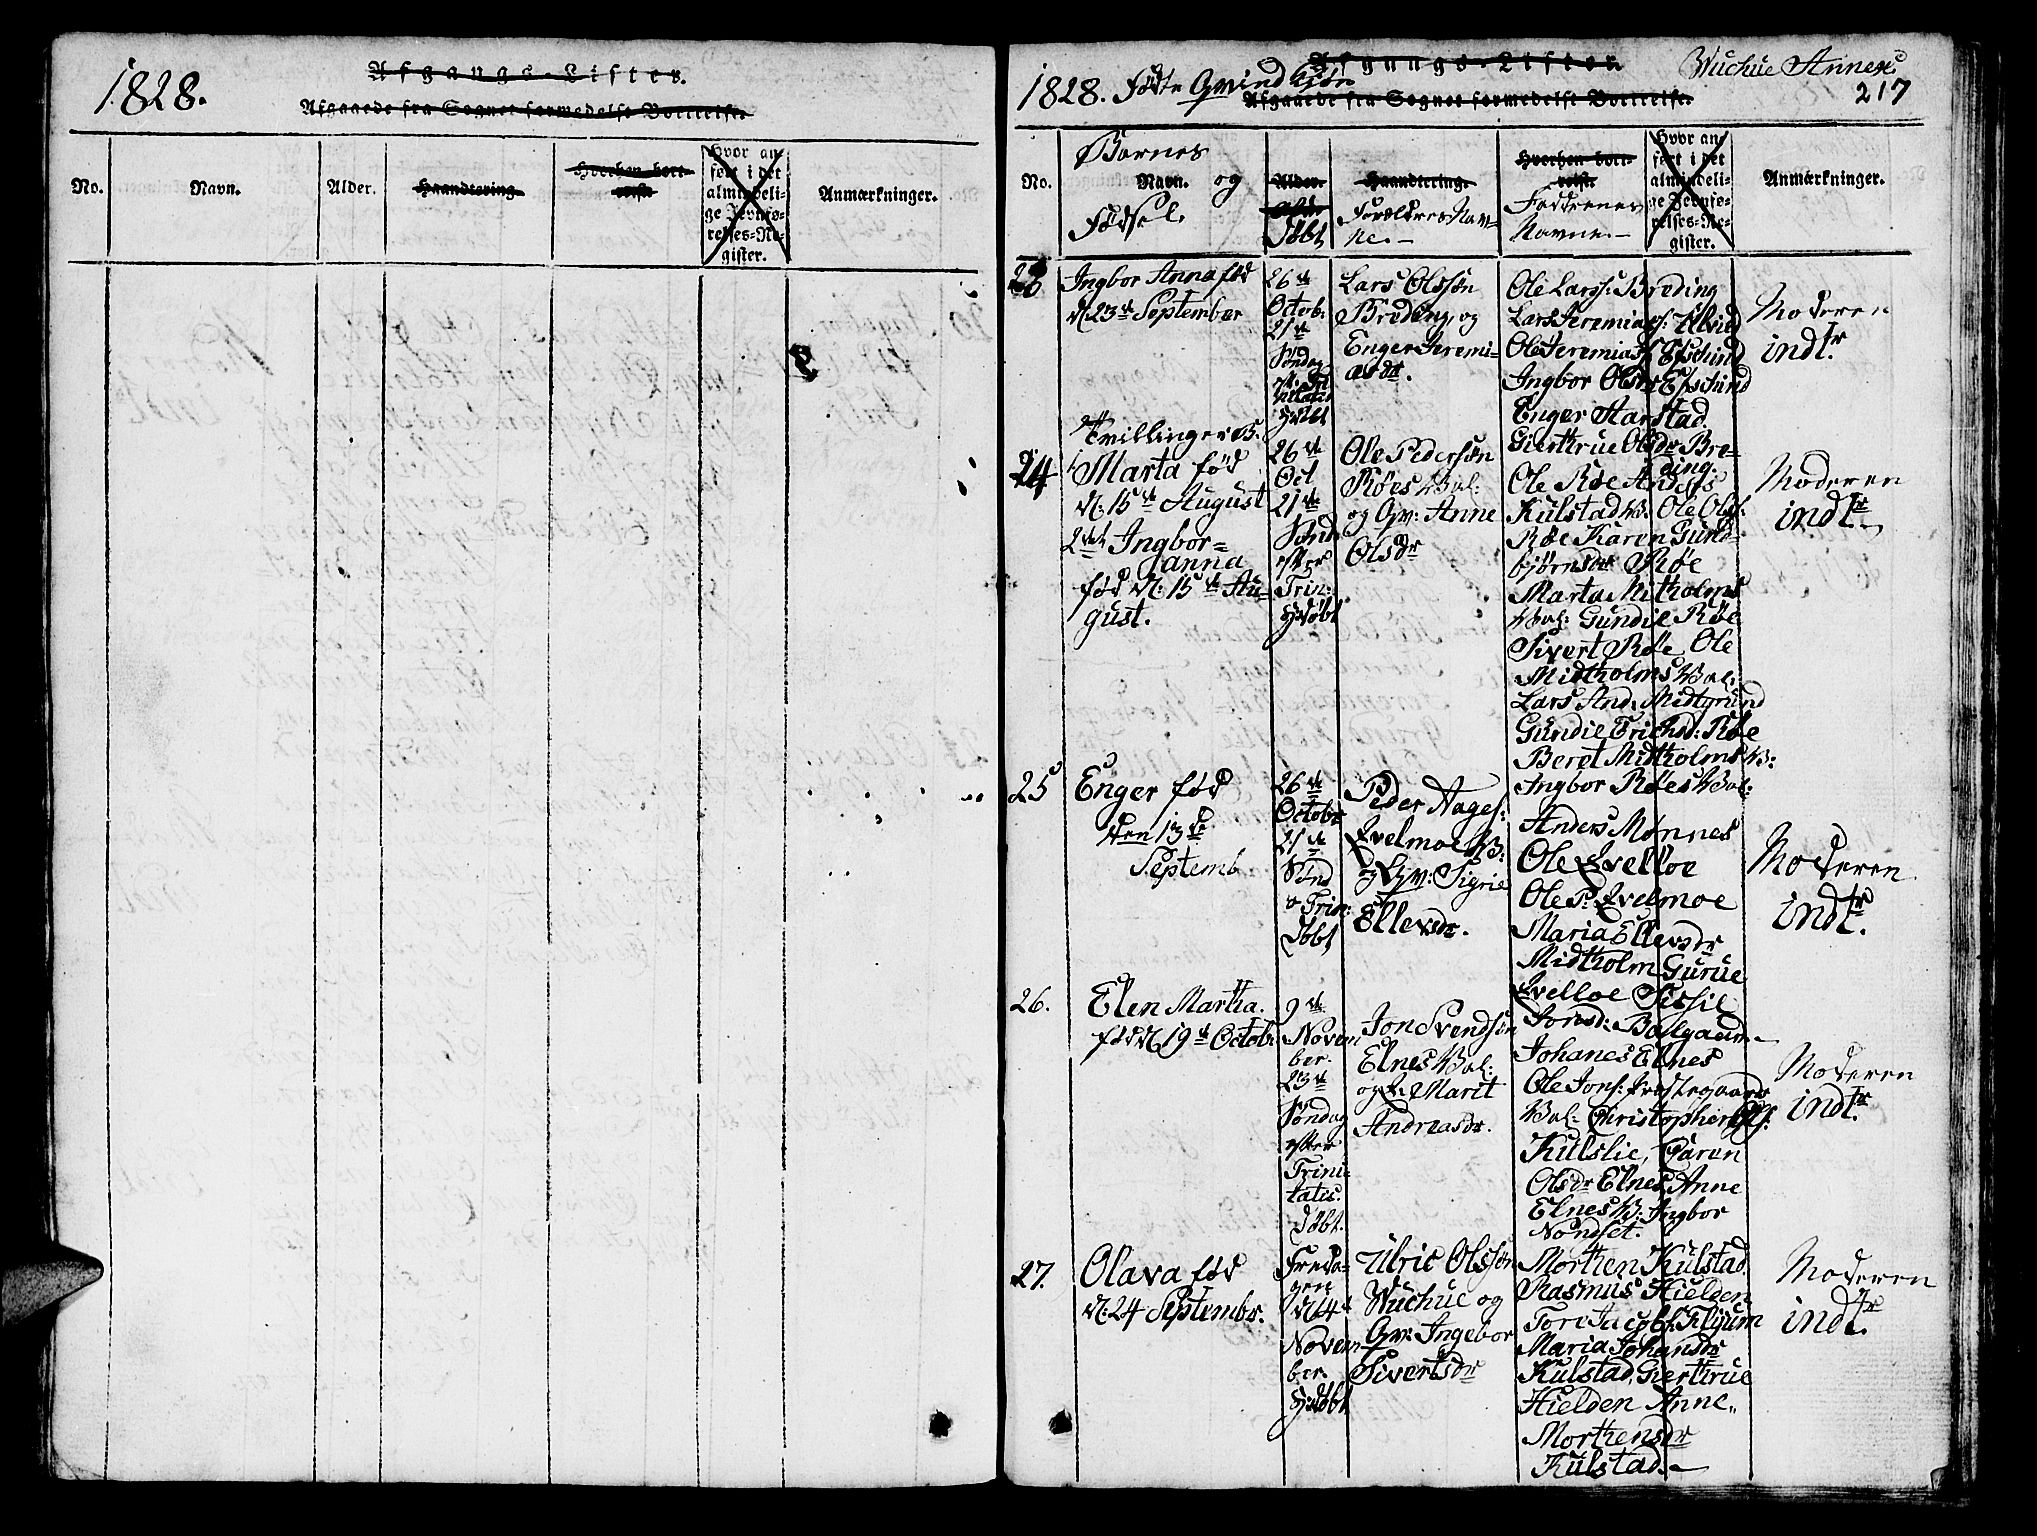 1828.
Afgangs-Lister.
Afgaaede fra Sognet formedelst Bortreise.
No.
Navn.
Alder.
Haandtering.
Hvorhen bort-
reist.
Hvor an-
ført i det
almindeli-
ge Jevnfø-
relses-Re-
gister.
Anmærkninger.
Afgangs-Lister.
Wuchue Annex:
217
1828. Fødte Qvindkiøn
Afgaaede fra Sognet formedelst Bortreise.
No.
Barnes
Navn. og
Fødsel.
Alder.
Døbt
Haandtering.
Forældres Nav-
ne.-
Hvorhen bort-
reist.
Faddrenes
Navne.-
Hvor an-
ført i det
almindeli-
ge Jevnfø-
relses-Re-
gister.
Anmærkninger.
23
Ingbor Anna fød
d. 23de September
26de
Octob:
21de
Søndag
Hjdøbt
Lars Olssøn
Breding, og
Enger Jeremi-
asdr.
Ole Larss: Breding
Lars Jeremias: Ulvid
Ole Jeremias: Efschind
Ingbor Olsdr Efschind
Enger Starstad.
Giertrue Olsdr Bre-
ding.
Moderen
indt.
24
Tvillinger B.
1 Marta fød
d: 15de August
2den Ingbor=
anna
fød d: 15de Au=
gust.
26de
Oct
21de
Sønd
efter
Trin:
Hjdøbt
Ole Pedersøn
Røes Wal:
og Qv: Anne
Olsdr
Ole Røe Anders
Kulstad W. Ole Ols:
Røe Karen Gund-
bjørnsdr Røe
Marta Mitholms
Wal: Gundie Røe
Sivert Røe Ole
Midtholms Wal:
Lars And: Midtgrund
Gundie Erichsd: Røe
Beret Midtholms W:
Ingbor Røes Wal:
Moderen
indt.
25
Enger fød
den 13de
Septemb
26de
Octobr
21de
Sønd
e Trin:
Døbt
Peder Aages:
Qvelmoe W:
og Qv: Sigrie
Ellevsdr.
Anders Mønnes
Ole Qvelloe
Ole P: Qvelmoe
Maria Ellevsdr
Midtholm Gurue
Qvelloe Sissil
Jonsd: Balgaard-
Moderen
indt.
26.
Elen Martha.
fød d 19de Octobr
9de
Novem
ber.
23de
Søndag
efter
Trini-
tatis.
Døbt.
Jon Svendsøn
Elnes Wal:
og Q. Marit
Andreasdr.
Johanes Elnes
Ole Jons: Prestegaards
Wal: Christopher Ols:
Kulslie, Karen
Olsdr Elnes, Anne
Elnes W: Ingbor
Nondset.
Moderen
indt.
27.
Olava fød
d: 24 Septembr.
Freda-
gen
d 14de
Novem
ber.
Hjdøbt
Ulric Olssøn
Wuchue og
Qv: Ingebor
Sivertsdr
Morthen Kulstad
Rasmus Hielden
Tore Jacobs: Flyum
Maria Johansdr
Kulstad, Giertrue
Hielden Anne,,
Morthensdr
Kulstad.-
Moderen
indt.